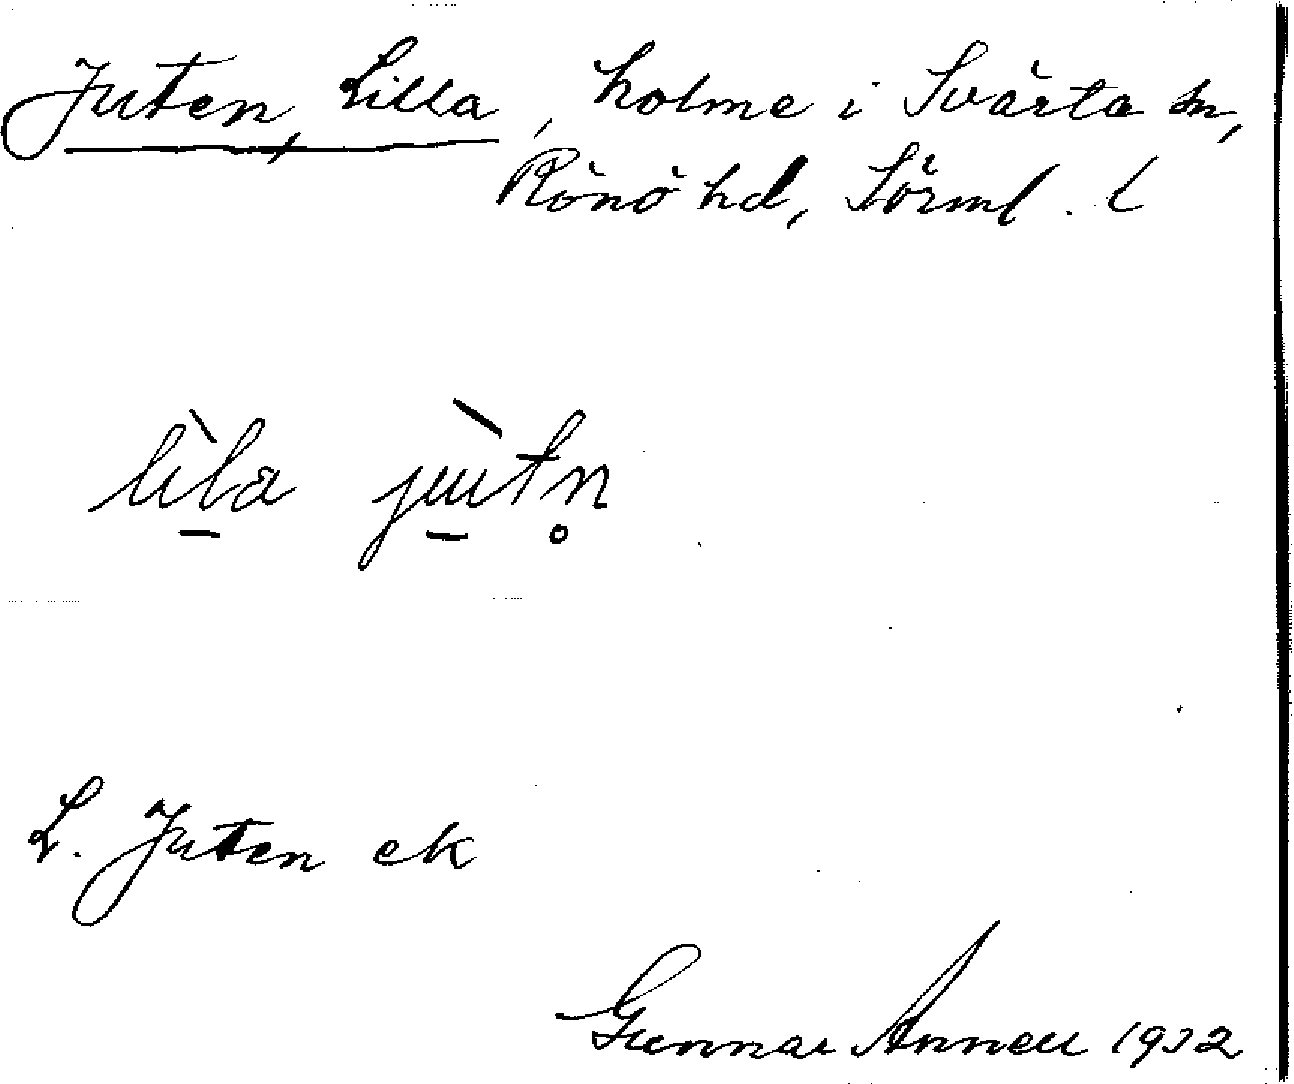 Juten, Lilla, holme i Svärta sn,
Rönö hd, Sörml. L
lìla jùtn̥
L. Juten ek
Gunnar Annell 1932